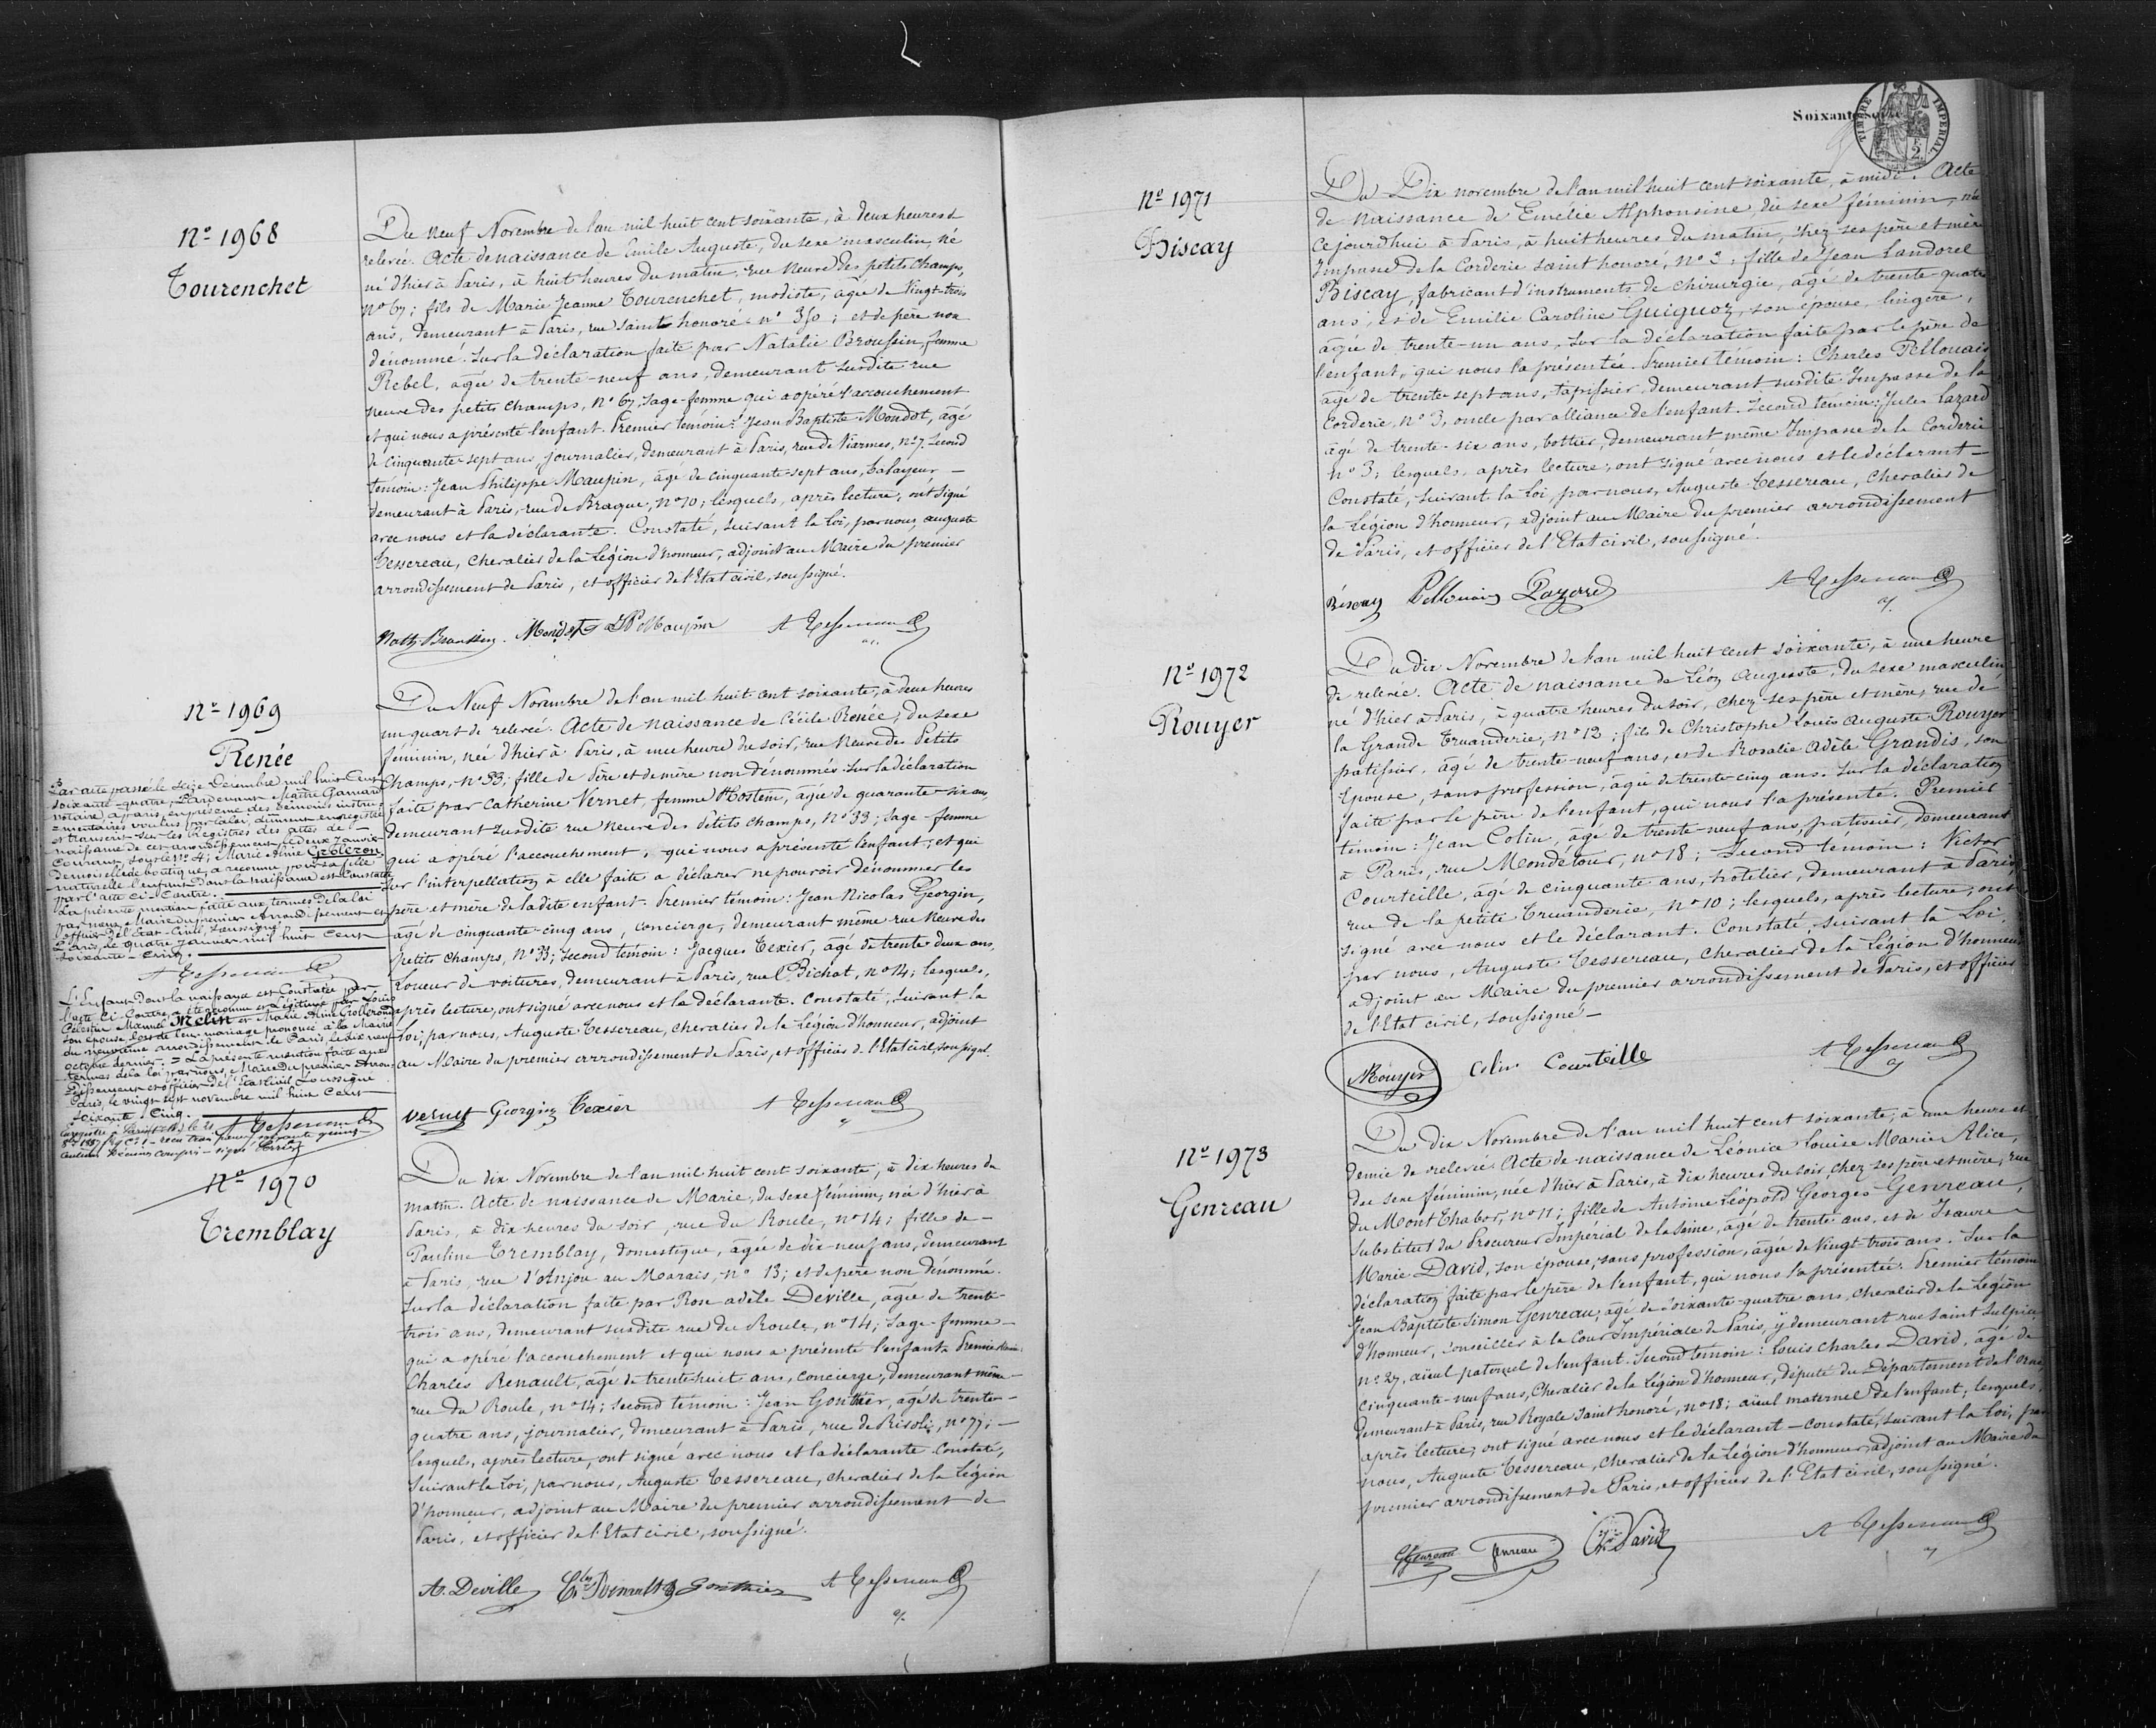 Nº 1968
Tourenchet
Du neuf Novembre de l'an mil huit cent soixante, à deux heures de
relevée. Acte de naissance de Emile Auguste, du sexe masculin, né
né d'hier à Paris, à huit heures du matin, rue Neuve des petits champs,
nº 67; fils de Marie Jeanne Tourenchet, modiste, âgée de Vingt-trois
ans, demeurant à Paris, rue Saint honoré nº 350; et de père non
dénommé. Sur la déclaration faite par Natalie Broussin, femme
Rebel, âgée de trente-neuf ans, demeurant susdite rue
neuve des petits champs, nº 67, sage-femme qui a opéré l'accouchement
et qui nous a présenté l'enfant. Premier témoin: Jean Baptiste Mondot, âgé
de cinquante-sept ans journalier, demeurant à Paris, rue de Viarmes, nº 7. Second
témoin: Jean Philippe Maupin, âgé de cinquante-sept ans, balayeur —
demeurant à Paris, rue de Braque, nº 10; lesquels, après lecture, ont signé
avec nous et la déclarante. Constaté, suivant la loi, par nous, auguste
Tessereau, chevalier de la Légion d'honneur, adjoint au Maire du premier
arrondissement de Paris, et officier de l'Etat civil, soussigné.
Nath Broussin. Mondot JP Maupin A Tessereau
Nº 1969
Renée
Par acte passé le seize Décembre mil huit Cent
soixante-quatre, pardevant Maître Gamard
notaire à paris, en présence des témoins instru-
=mentaires voulus par la loi, dûment enregistré
et transcrit sur les Registres des actes de —
naissance de cet arrondissement le deux Janvier
Courant, sous le Nº 4; Marie Aline Grolleron
demoiselle de boutique, a reconnu pour sa fille
naturelle l'enfant dont la naissance est Constatée
par l'acte ci-Contre.
La présente mention faite aux termes de la loi
par nous, Maire du premier Arrondissement et
officier de l'Etat-Civil, soussigné
Paris, le quatre Janvier mil huit Cent
soixante-Cinq.
A Tessereau
L'Enfant dont la naissance est Constatée par
l'acte Ci-Contre, a été reconnue et Légitimée par Louis
Célestin Manuel Melin et Marie Aline Grolleron
son épouse, lors de leur mariage prononcé à la Mairie
du neuvième arrondissement de Paris, le dix neuf
octobre dernier. = La présente mention faite aux
termes de la loi par nous, Maire du premier Arron-
dissement et officier de l'Etat Civil, soussigné
Paris, le vingt sept novembre mil huit Cent
soixante Cinq.
A Tessereau
Du Neuf Novembre de l'an mil huit cent soixante, à deux heures
un quart de relevée. Acte de naissance de Cécile Renée, du sexe
féminin, née d'hier à Paris, à une heure du soir, rue Neuve des Petits
Champs, nº 33; fille de Père et de mère non dénommés. Sur la déclaration
faite par Catherine Vernet, femme Hostein, âgée de quarante-six ans,
demeurant susdite rue Neuve des Petits champs, nº 33; sage-femme
qui a opéré l'accouchement, qui nous a présenté l'enfant; et qui
sur l'interpellation à elle faite a déclaré ne pouvoir dénommer les
père et mère de ladite enfant. Premier témoin: Jean Nicolas Georgin,
âgé de cinquante-cinq ans, concierge, demeurant même rue Neuve des
petits champs, nº 33; second témoin: Jacques Texier, âgé de trente deux ans,
Loueur de voitures, demeurant à Paris, rue Bichat, nº 14; lesquels,
après lecture, ont signé avec nous et la déclarante. Constaté, suivant la
loi, par nous, Auguste Tessereau, chevalier de la Légion d'honneur, adjoint
au Maire du premier arrondissement de Paris, et officier de l'Etat civil, soussigné.
Vernet Georgin Texier A Tessereau
Nº 1970
Tremblay
Du dix Novembre de l'an mil huit cent soixante, à dix heures du
matin. Acte de naissance de Marie, du sexe féminin, née d'hier à
Paris, à dix heures du soir, rue du Roule, nº 14; fille de —
Pauline Tremblay, domestique, âgée de dix-neuf ans, demeurant
à Paris, rue d'Anjou au Marais, nº 13; et de père non dénommé.
Sur la déclaration faite par Rose adèle Deville, âgée de trente-
trois ans, demeurant susdite rue du Roule, nº 14; sage-femme —
qui a opéré l'accouchement et qui nous a présenté l'enfant. Premier témoin:
Charles Renault, âgé de trente-huit ans, concierge, demeurant même
rue du Roule, nº 14; second témoin: Jean Gonthier, âgé de trente-
quatre ans, journalier, demeurant à Paris, rue de Rivoli, nº 77; —
lesquels, après lecture, ont signé avec nous et la déclarante. Constaté,
suivant la Loi, par nous, Auguste Tessereau, chevalier de la Légion
d'honneur, adjoint au Maire du premier arrondissement de
Paris, et officier de l'Etat civil, soussigné.
A. Deville Ch Renault Gonthier A Tessereau
Soixante
TIMBRE IMPERIAL
2
Nº 1971
Biscay
Du Dix novembre de l'an mil huit cent soixante, à midi. Acte
de naissance de Emélie Alphonsine, du sexe féminin, née
cejourd'hui à Paris, à huit heures du matin, chez ses père et mère
Impasse de la Corderie saint honoré, nº 3; fille de Jean Landorel
Biscay, fabricant d'instruments de chirurgie, âgé de trente-quatre
ans, et de Emilie Caroline Guiguoz, son épouse, lingère,
âgée de trente-un ans, sur la déclaration faite par le père de
l'enfant, qui nous l'a présentée. Premier témoin: Charles Pellouais
âgé de trente-sept ans, tapissier, demeurant susdite Impasse de la
Corderie, nº 3, oncle par alliance de l'enfant. Second témoin: Jules Lazard
âgé de trente-six ans, bottier, demeurant même Impasse de la Corderie
nº 3; lesquels, après lecture, ont signé avec nous et le déclarant —
Constaté, suivant la Loi, par nous, Auguste Tessereau, Chevalier de
la Légion d'honneur, adjoint au Maire du premier arrondissement
de Paris, et officier de l'Etat civil, soussigné.
Biscay Pellouais Lazard A Tessereau
Nº 1972
Rouyer
Du dix Novembre de l'an mil huit cent soixante, à une heure
de relevée. Acte de naissance de Léon Auguste, du sexe masculin
né d'hier à Paris, à quatre heures du soir, chez ses père et mère, rue de
la Grande Truanderie, nº 12; fils de Christophe Louis Auguste Rouyer
patissier, âgé de trente-neuf ans, et de Rosalie Adèle Grandis, son
Epouse, sans profession, âgée de trente-cinq ans. Sur la déclaration
faite par le père de l'enfant, qui nous l'a présenté. Premier
témoin: Jean Colin, âgé de trente-neuf ans, patissier, demeurant
à Paris, rue Mondétour, nº 18; Second témoin: Victor
Courteille, âgé de cinquante ans, hôtelier, demeurant à Paris,
rue de la petite Truanderie, nº 10; lesquels, après lecture, ont
signé avec nous et le déclarant. Constaté, suivant la Loi,
par nous, Auguste Tessereau, chevalier de la Légion d'honneur
adjoint au Maire du premier arrondissement de Paris, et officier
de l'Etat civil, soussigné —
Rouyer Colin Courteille A Tessereau
Nº 1973
Genreau
Du dix Novembre de l'an mil huit cent soixante, à une heure et
demie de relevée. Acte de naissance de Léonice Louise Marie Alice,
du sexe féminin, née d'hier à Paris, à dix heures du soir, chez ses père et mère, rue
du Mont Thabor, nº 11; fille de Antoine Léopold Georges Genreau,
Substitut du Procureur Impérial de la Seine, âgé de trente ans, et de Isaure
Marie David, son épouse, sans profession, âgée de Vingt-trois ans. Sur la
déclaration faite par le père de l'enfant, qui nous l'a présentée. Premier témoin
Jean Baptiste Simon Genreau, âgé de soixante-quatre ans, chevalier de la Légion
d'honneur, conseiller à la Cour Impériale de Paris, y demeurant rue Saint Sulpice,
nº 27, aïeul paternel de l'enfant. Second témoin: Louis Charles David, âgé de
cinquante-neuf ans, Chevalier de la Légion d'honneur, député du Département de l'Orne
demeurant à Paris, rue Royale Saint honoré, nº 18; aïeul maternel de l'enfant; lesquels
après lecture, ont signé avec nous et le déclarant — constaté, suivant la Loi, par
nous, Auguste Tessereau, Chevalier de la Légion d'honneur, adjoint au Maire du
premier arrondissement de Paris, et officier de l'Etat civil, soussigné.
Genreau Genreau David A Tessereau